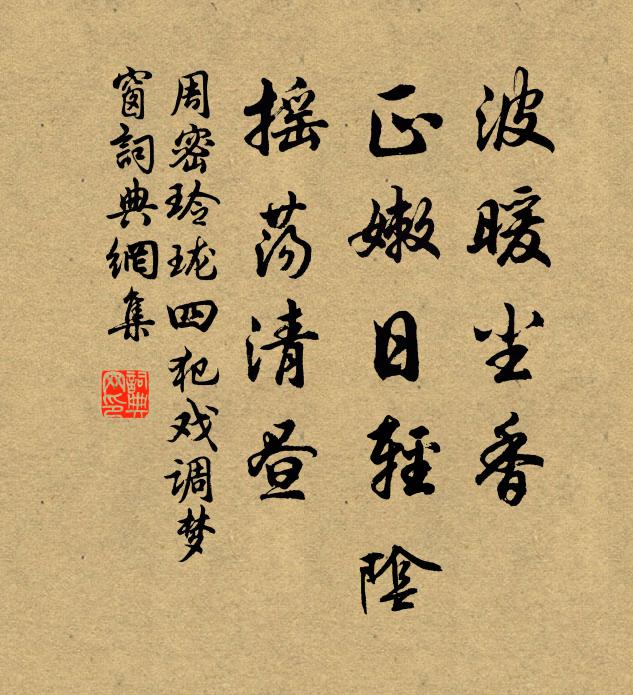 波暖尘香
正嫩日輕陰
摇荡清昼
周密玲珑四犯戏调梦
窗詞典網集
詞典网印